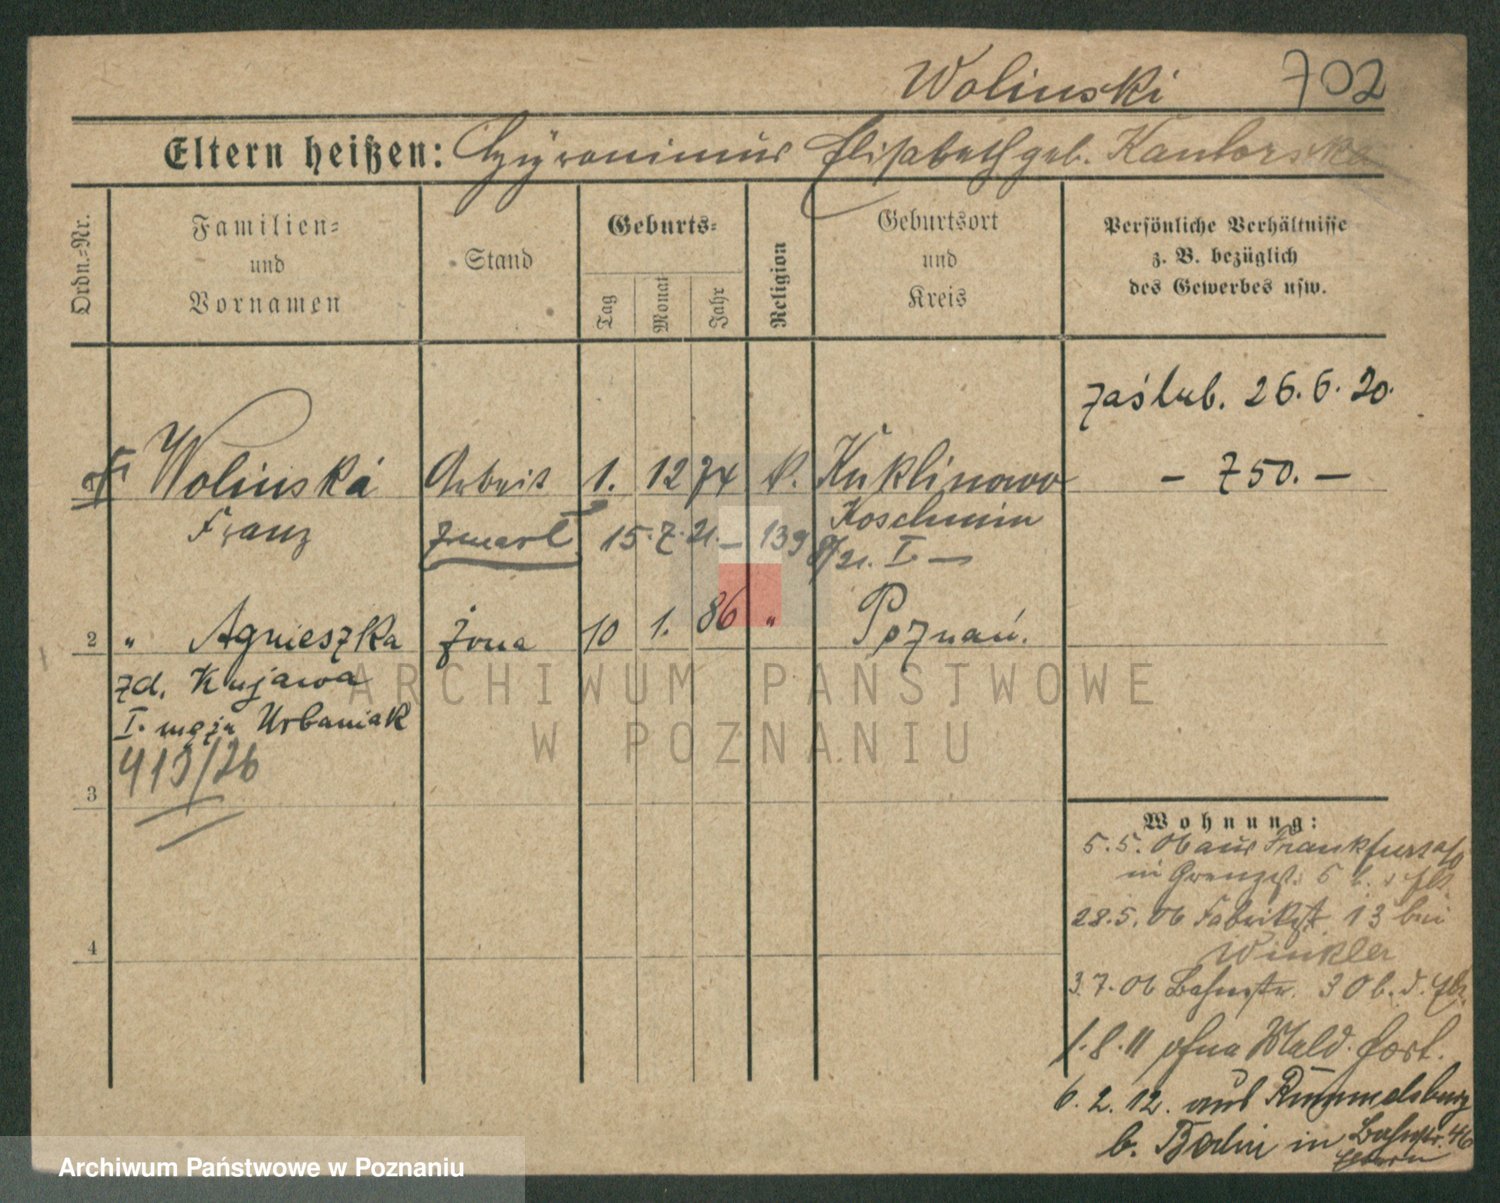 Wolinski 702
Eltern heißen: Hyronimus Elisabeth geb. Kantorska
Ordn.-Nr.
Familien-
und
Vornamen
Stand
Geburts-
Tag
Monat
Jahr
Religion
Geburtsort
und
Kreis
Persönliche Verhältnisse
z. B. bezüglich
des Gewerbes usw.
zaślub. 26.6.20.
Wolinski Arbeit 1. 12 74 k. Kuklinowo - 750. -
Franz zmarł 15.7.21. - 139 Koschmin
/21. I. -
2 " Agnieszka żona 10 1. 86 " Poznań.
zd. Kujawa
I. męża Urbaniak
413/26
3
4
Wohnung:
5.5.06 aus Frankfurt a/O
in Grenzst. 5 b.
28.5.06 Fabrikst 13 bei
Winkler
3.7.06 Bahnstr. 30 b. d.
1.8.11 ohne Meld. fort.
6.2.12. aus Rummelsburg
b. Berlin in Bahnstr. 46
ARCHIWUM PAŃSTWOWE
W POZNANIU
Archiwum Państwowe w Poznaniu